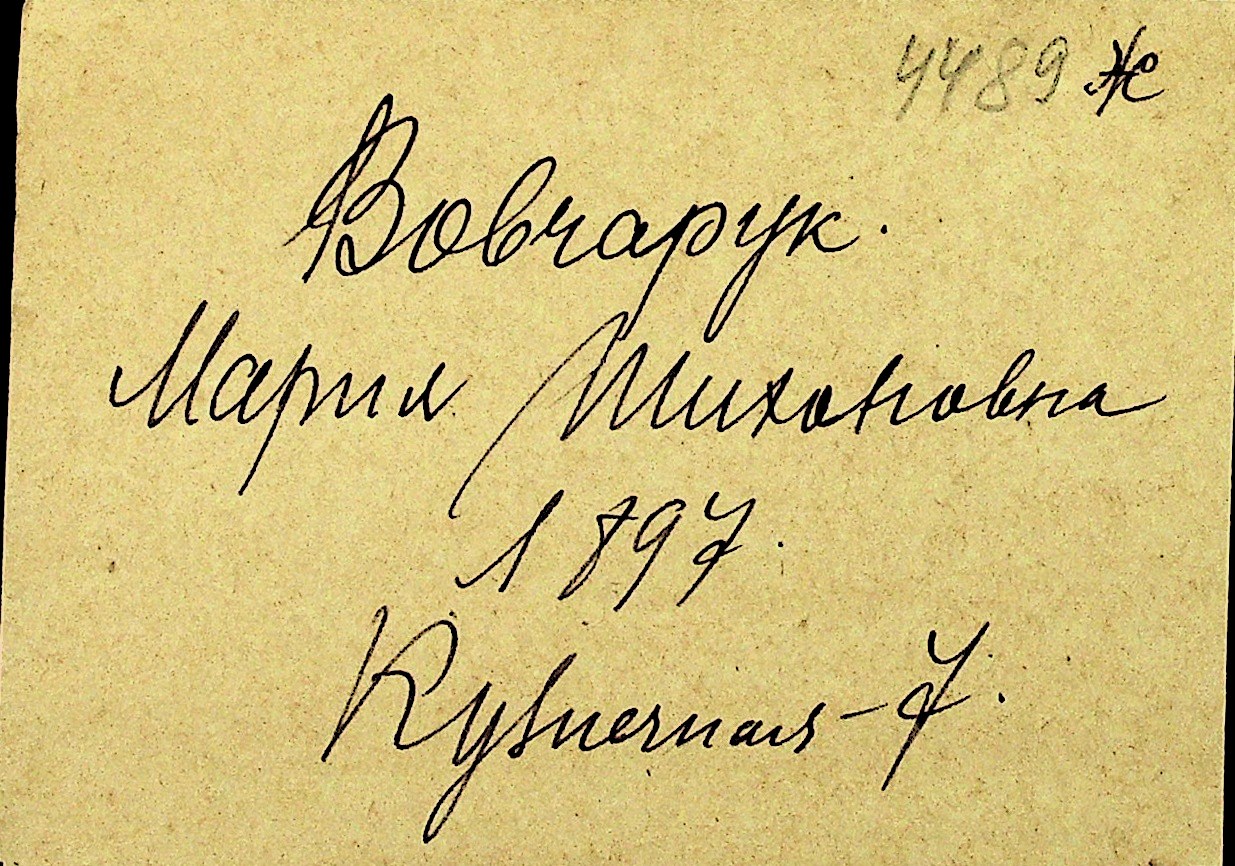 4489 Ж
Вовчарук.
Мария Тихоновна
1897.
Кузнечная-7.